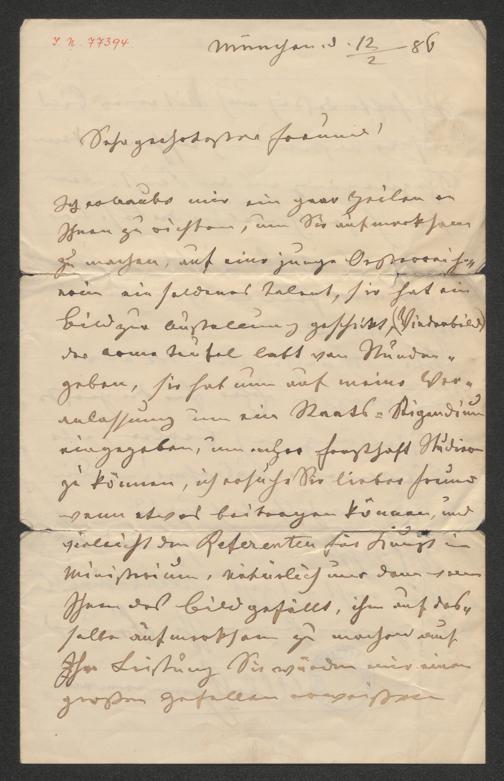 I. N. 77394
München d. 12/2 86
Sehr geehrtester Freund!
Ich erlaube mir ein paar Zeilen an
Ihnen zu richten, um Sie aufmerksam
zu machen, auf eine junge Oesterreich-
erin ein seltenes Talent, sie hat ein
Bild zur Austellung geschikt, (Kinderbild)
der arme Teufel lebt von Stunden-
geben, sie hat nun auf meine Ver-
anlassung um ein Staats-Stipendium
eingegeben, um ernsthaft Studiren
zu können, ich ersuche Sie lieber Freund
wenn etwas beitragen können, und
vieleicht den Referenten für Kunst im
Ministerium, natürlich nur dann wenn
Ihnen das Bild gefällt, ihn auf das-
selbe aufmerksam zu machen auf
Ihre Leistung Sie würden mir einen
großen Gefallen erweißen